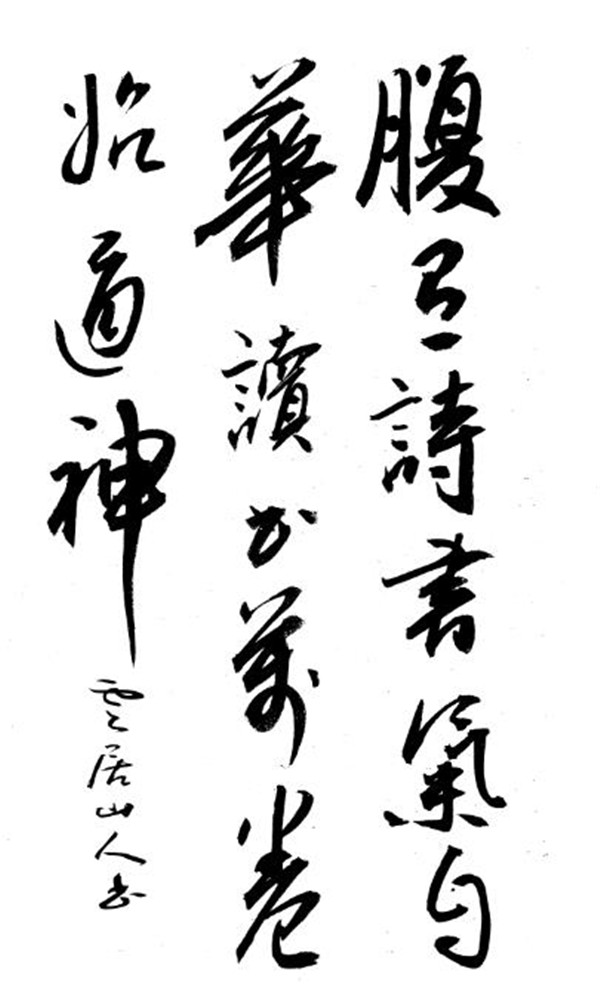 腹有詩書氣自
華讀書萬卷
始通神
雲居山人書